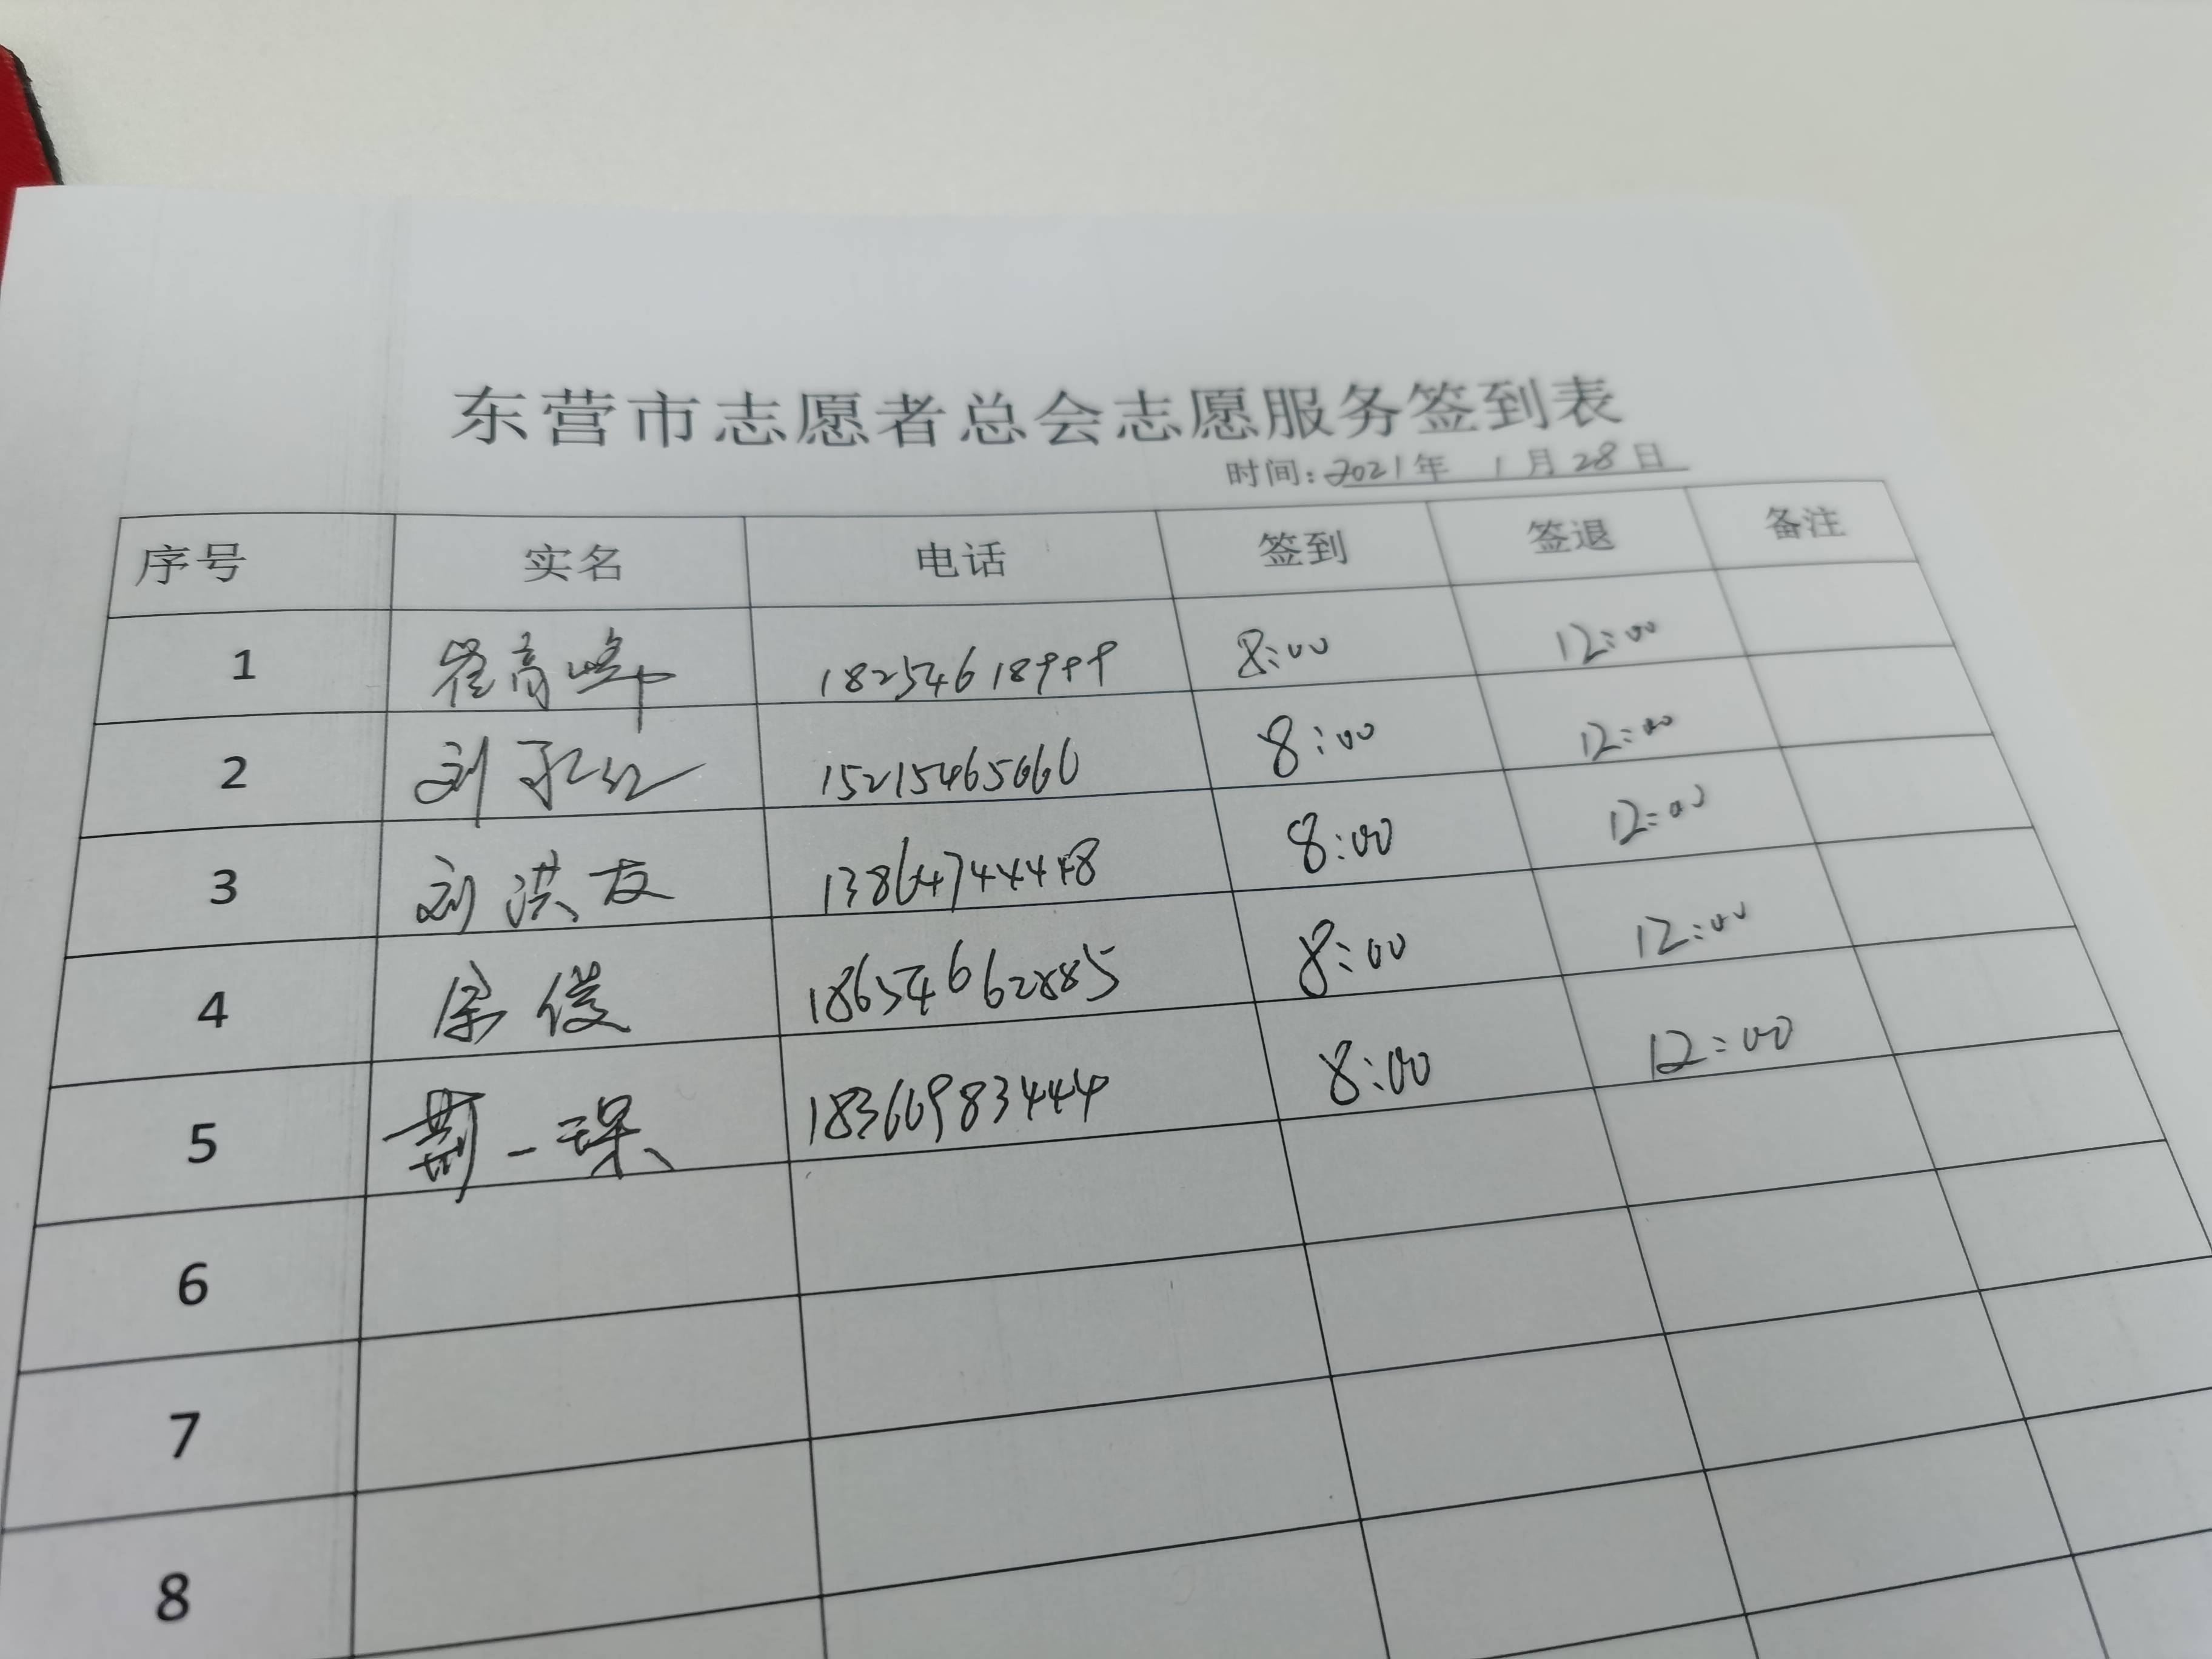 东营市志愿者总会志愿服务签到表
时间：2021年 1月28日
序号 实名 电话 签到 签退 备注
1 崔高峰 18254618999 8:00 12:00
2 刘 15215465666 8:00 12:00
3 刘洪友 13864744448 8:00 12:00
4 宗俊 18654662885 8:00 12:00
5 荆一琛 18366983444 8:00 12:00
6
7
8